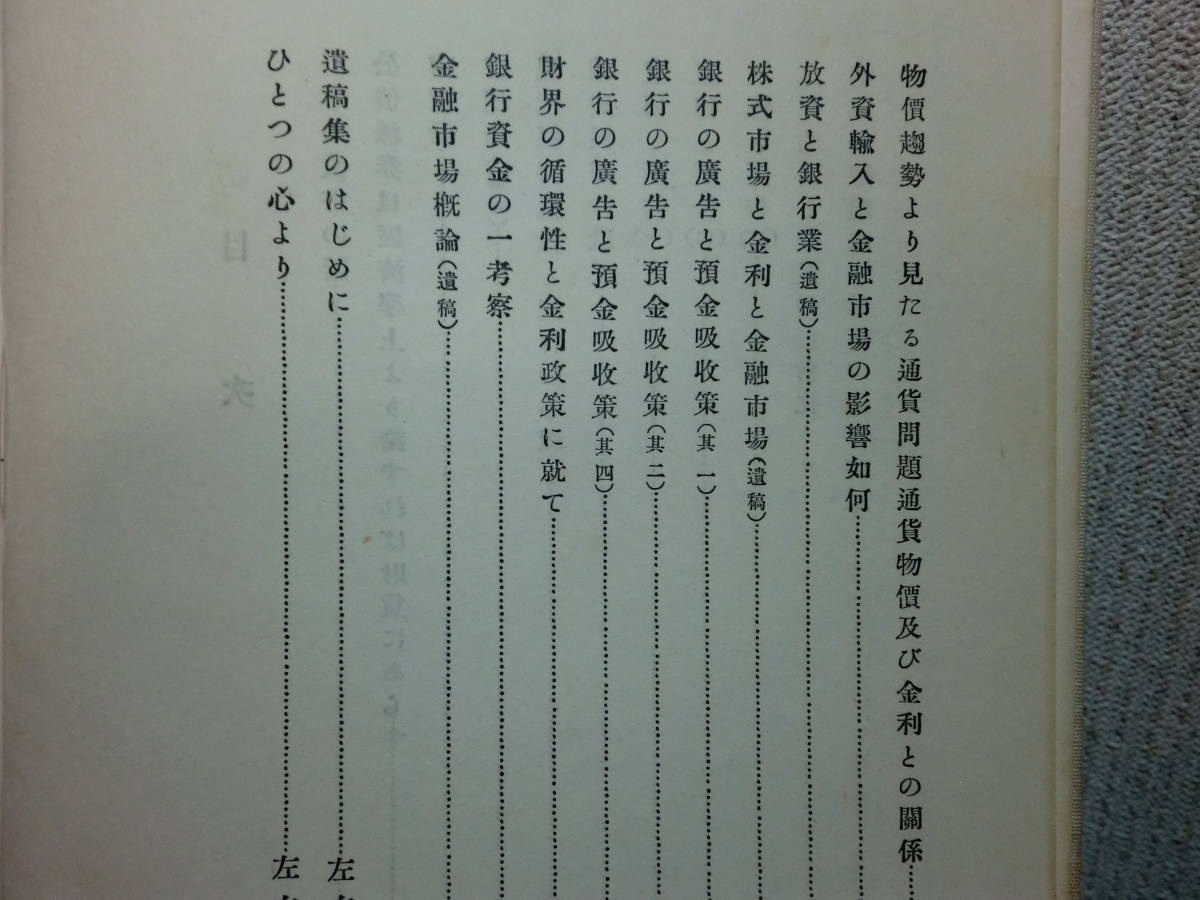 物價趨勢より見たる通貨問題通貨物價及び金利との關係
外資輸入と金融市場の影響如何
放資と銀行業(遺稿)
株式市場と金利と金融市場(遺稿)
銀行の廣告と預金吸收策(其一)
銀行の廣告と預金吸收策(其二)
銀行の廣告と預金吸收策(其四)
財界の循環性と金利政策に就て
銀行資金の一考察
金融市場概論(遺稿)
遺稿集のはじめに……左
ひとつの心より……左